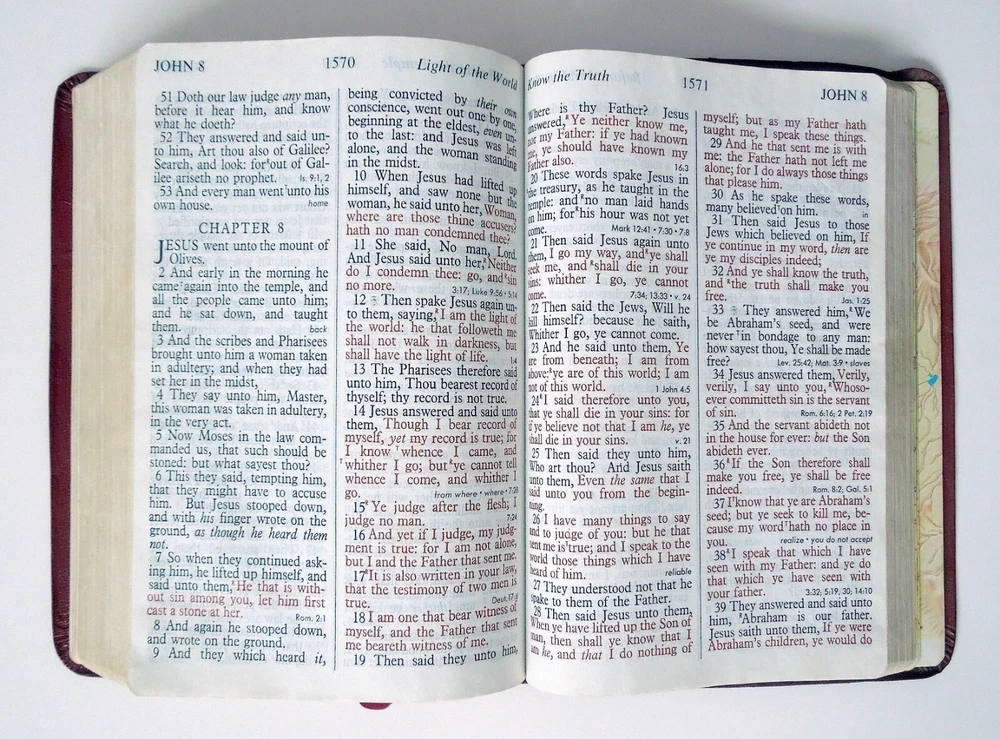 JOHN 8
1570
Light of the World
51 Doth our law judge any man,
before it hear him, and know
what he doeth?
52 They answered and said un-
to him, Art thou also of Galilee?
Search, and look: for out of Gal-
ilee ariseth no prophet. Is. 9:1, 2
53 And every man went unto his
own house. home
CHAPTER 8
JESUS went unto the mount of
Olives.
2 And early in the morning he
came again into the temple, and
all the people came unto him;
and he sat down, and taught
them. back
3 And the scribes and Pharisees
brought unto him a woman taken
in adultery; and when they had
set her in the midst,
4 They say unto him, Master,
this woman was taken in adultery,
in the very act.
5 Now Moses in the law com-
manded us, that such should be
stoned: but what sayest thou?
6 This they said, tempting him,
that they might have to accuse
him. But Jesus stooped down,
and with his finger wrote on the
ground, as though he heard them
not.
7 So when they continued ask-
ing him, he lifted up himself, and
said unto them, He that is with-
out sin among you, let him first
cast a stone at her. Rom. 2:1
8 And again he stooped down,
and wrote on the ground.
9 And they which heard it,
being convicted by their own
conscience, went out one by one,
beginning at the eldest, even un-
to the last: and Jesus was left
alone, and the woman standing
in the midst.
10 When Jesus had lifted up
himself, and saw none but the
woman, he said unto her, Woman,
where are those thine accusers?
hath no man condemned thee?
11 She said, No man, Lord.
And Jesus said unto her, Neither
do I condemn thee: go, and sin
no more. 3:17; Luke 9:56 • 5:14
12 Then spake Jesus again un-
to them, saying, I am the light of
the world: he that followeth me
shall not walk in darkness, but
shall have the light of life. 1:4
13 The Pharisees therefore said
unto him, Thou bearest record of
thyself; thy record is not true.
14 Jesus answered and said unto
them, Though I bear record of
myself, yet my record is true; for
I know whence I came, and
whither I go; but ye cannot tell
whence I come, and whither I
go. from where • where • 7:28
15 Ye judge after the flesh; I
judge no man. 7:24
16 And yet if I judge, my judg-
ment is true: for I am not alone,
but I and the Father that sent me.
17 It is also written in your law,
that the testimony of two men is
true. Deut. 17
18 I am one that bear witness of
myself, and the Father that sent
me beareth witness of me.
19 Then said they unto him,
Know the Truth
1571
JOHN 8
Where is thy Father? Jesus
answered, Ye neither know me,
nor my Father: if ye had known
me, ye should have known my
Father also. 16:3
20 These words spake Jesus in
the treasury, as he taught in the
temple: and no man laid hands
on him; for his hour was not yet
come. Mark 12:41 • 7:30 • 7:8
21 Then said Jesus again unto
them, I go my way, and ye shall
seek me, and shall die in your
sins: whither I go, ye cannot
come. 7:34; 13:33 • v. 24
22 Then said the Jews, Will he
kill himself? because he saith,
Whither I go, ye cannot come.
23 And he said unto them, Ye
are from beneath; I am from
above: ye are of this world; I am
not of this world. 1 John 4:5
24 I said therefore unto you,
that ye shall die in your sins: for
if ye believe not that I am he, ye
shall die in your sins. v. 21
25 Then said they unto him,
Who art thou? And Jesus saith
unto them, Even the same that I
said unto you from the begin-
ning.
26 I have many things to say
and to judge of you: but he that
sent me is true; and I speak to the
world those things which I have
heard of him. reliable
27 They understood not that he
spake to them of the Father.
28 Then said Jesus unto them,
When ye have lifted up the Son of
man, then shall ye know that I
am he, and that I do nothing of
myself; but as my Father hath
taught me, I speak these things.
29 And he that sent me is with
me: the Father hath not left me
alone; for I do always those things
that please him.
30 As he spake these words,
many believed on him. in
31 Then said Jesus to those
Jews which believed on him, If
ye continue in my word, then are
ye my disciples indeed;
32 And ye shall know the truth,
and the truth shall make you
free. Jas. 1:25
33 They answered him, We
be Abraham's seed, and were
never in bondage to any man:
how sayest thou, Ye shall be made
free? Lev. 25:42; Mat. 3:9 • slaves
34 Jesus answered them, Verily,
verily, I say unto you, Whoso-
ever committeth sin is the servant
of sin. Rom. 6:16; 2 Pet. 2:19
35 And the servant abideth not
in the house for ever: but the Son
abideth ever.
36 If the Son therefore shall
make you free, ye shall be free
indeed. Rom. 8:2; Gal. 5:1
37 I know that ye are Abraham's
seed; but ye seek to kill me, be-
cause my word hath no place in
you. realize • you do not accept
38 I speak that which I have
seen with my Father: and ye do
that which ye have seen with
your father. 3:32; 5:19, 30; 14:10
39 They answered and said unto
him, Abraham is our father.
Jesus saith unto them, If ye were
Abraham's children, ye would do